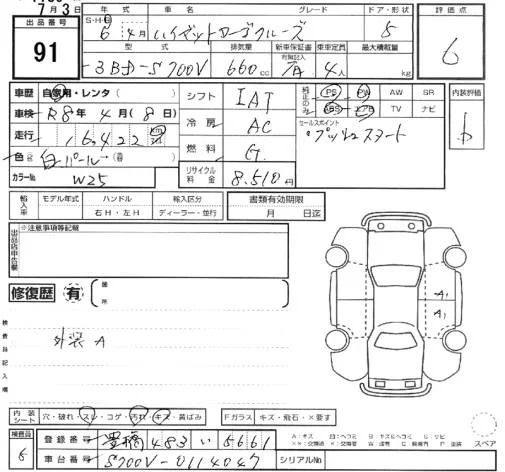 7月3日
出品番号
91
年式 車名 グレード ドア・形状 評価点
S・H・R
6年4月 ハイゼットカーゴクルーズ 5 6
型式 排気量 新車保証書 乗車定員 最大積載量
有無記入
3BD-S700V 660cc 有 4人 kg
車歴 自家用・レンタ( )
車検 R8年4月(8日)
走行 16,422 km
色 白パール→( )
カラーNo. W25
シフト IAT
冷房 AC
燃料 G.
リサイクル料金 8,510円
純正のみ PS PW AW SR
ABS エアB TV ナビ
セールスポイント
プッシュスタート
内装評価
b
輸入車 モデル年式 ハンドル 輸入区分
年 右H・左H ディーラー・並行
書類有効期限
月 日迄
出品店申告欄
※注意事項等記載
修復歴 有 箇所
検査員記入欄
外装A
A1
A1
内装シート 穴・破れ・スレ・コゲ・汚れ・キズ・黄ばみ
Fガラス キズ・飛石・×要す
検査員
6
登録番号 豊橋 483 い 5661
車台番号 S700V-0114047
シリアルNo.
スペア